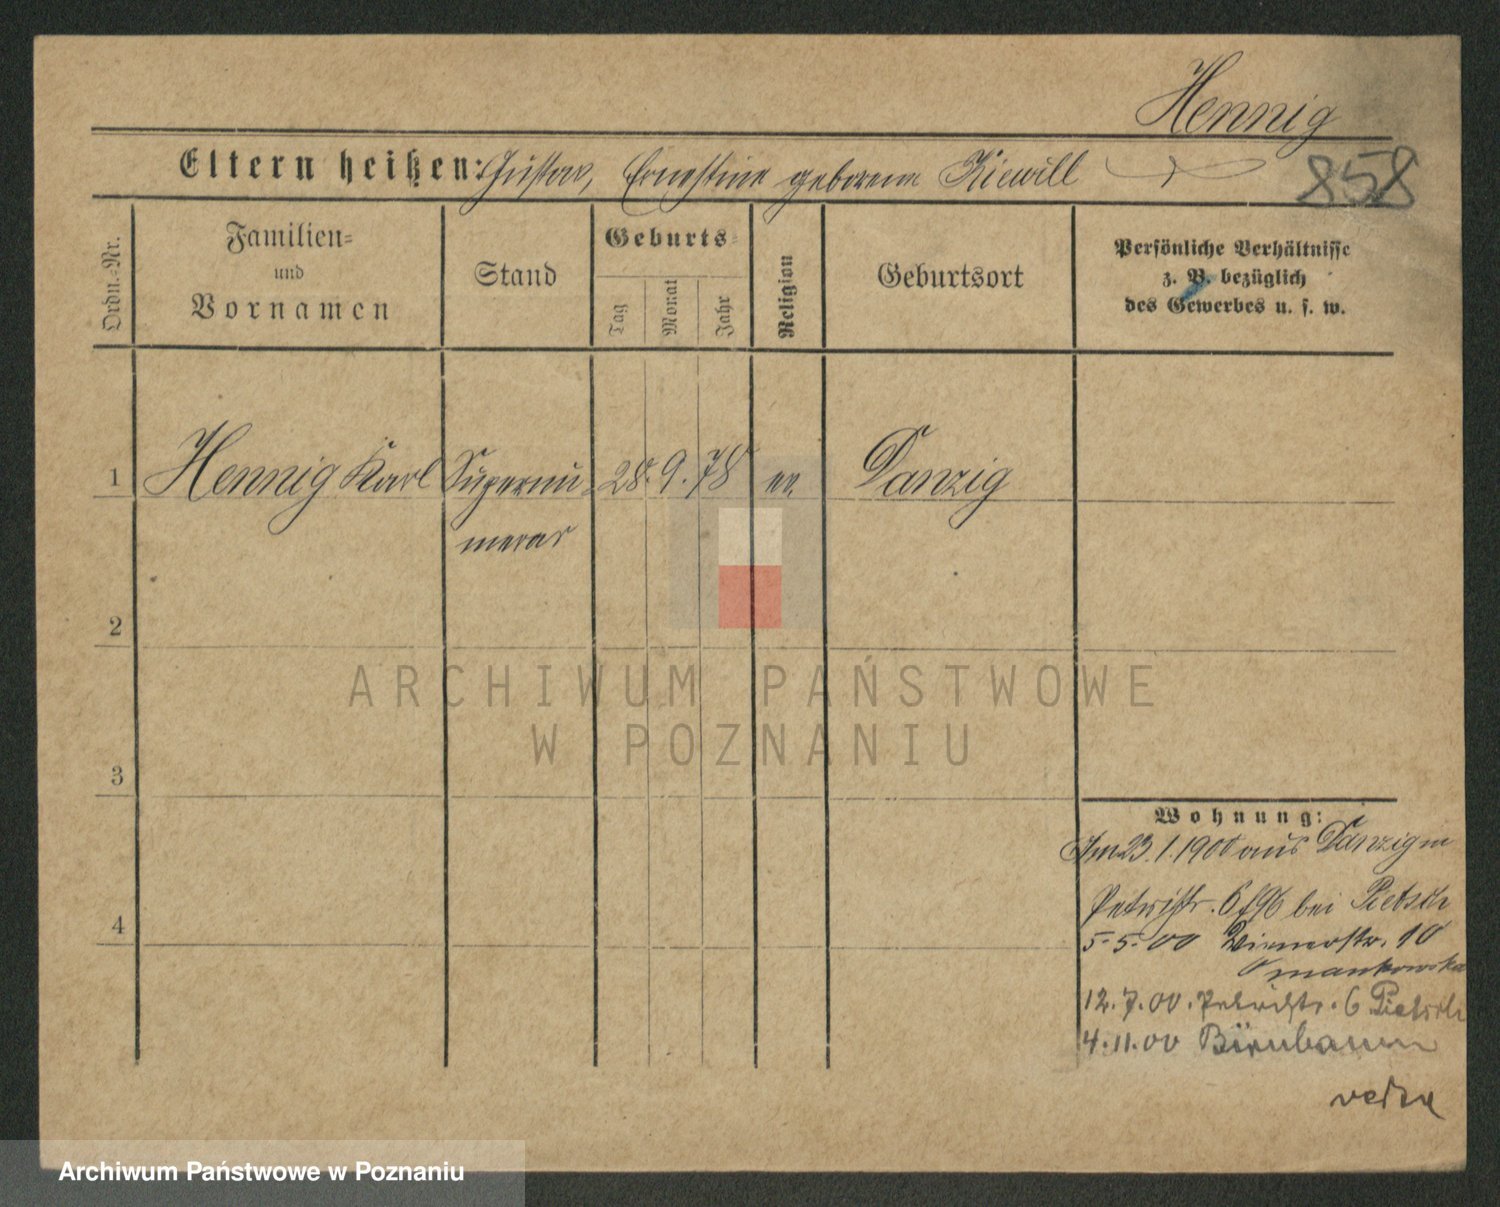 Hennig
Eltern heißen: Gustav, Ernestine geborene Kiewill
858
Ordn.-Nr.
Familien-
und
Vornamen
Stand
Geburts-
Tag
Monat
Jahr
Religion
Geburtsort
Persönliche Verhältnisse
z. B. bezüglich
des Gewerbes u. s. w.
1 Hennig Karl Supernu- 28. 9. 78 ev. Danzig
merar
2
ARCHIWUM PAŃSTWOWE
W POZNANIU
3
Wohnung:
Am 23.1.1900 aus Danzig in
Petristr. 6 bei Pietsch
4
5.5.00 Wienerstr. 10
12.7.00. Petristr. 6 Pietsch
4.11.00 Birnbaum
Archiwum Państwowe w Poznaniu